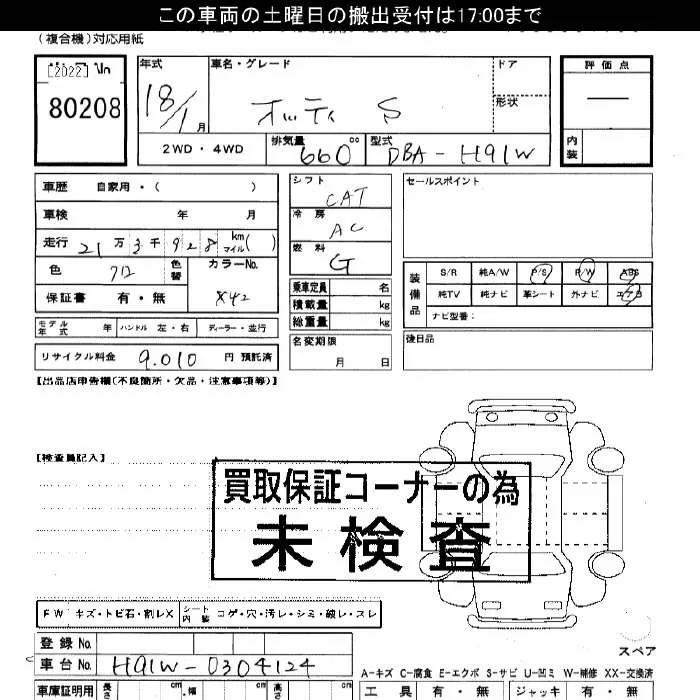 この車両の土曜日の搬出受付は17:00まで
(複合機)対応用紙
[2022]
80208
年式
18/1
月
車名・グレード
オッティ S
ドア
形状
評価点
内装
2WD・4WD
排気量
660
cc
型式
DBA-H91W
車歴 自家用・( )
車検 年 月
走行 21万3千928 km マイル( )
色
712
色替
カラーNo.
X42
保証書 有・無
モデル年式 年
ハンドル 左・右
ディーラー・並行
リサイクル料金 9.010 円 預託済
シフト
CAT
冷房
AC
燃料
G
乗車定員 名
積載量 kg
総重量 kg
名変期限
月 日
セールスポイント
装備品
S/R 純A/W P/S P/W ABS
純TV 純ナビ 革シート 外ナビ エアB
ナビ型番:
後日品
【出品店申告欄(不良箇所・欠品・注意事項等)】
【検査員記入】
買取保証コーナーの為
未検査
FW キズ・トビ石・割レX
シート内装 コゲ・穴・汚レ・シミ・破レ・スレ
スペア
登録No.
車台No. H91W-0304124
車庫証明用 長さ cm 幅 cm 高さ cm
A-キズ C-腐食 E-エクボ S-サビ U-凹ミ W-補修 XX-交換済
工具 有・無 ジャッキ 有・無